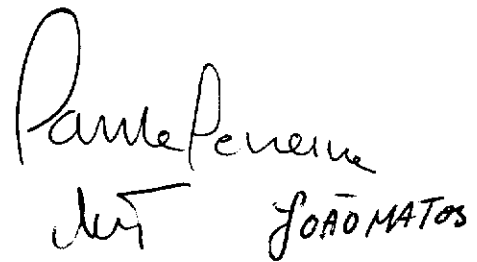 Paula Pereira
JOÃO MATOS